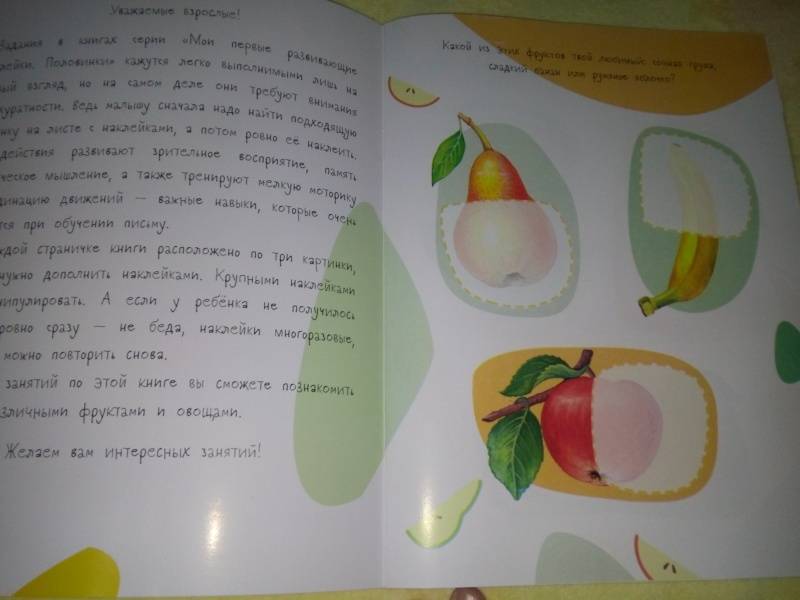 Уважаемые взрослые!
Задания в книгах серии «Мои первые развивающие
клейки. Половинки» кажутся легко выполнимыми лишь на
вый взгляд, но на самом деле они требуют внимания
куратности. Ведь малышу сначала надо найти подходящую
нку на листе с наклейками, а потом ровно её наклеить.
действия развивают зрительное восприятие, память
ческое мышление, а также тренируют мелкую моторику
динацию движений — важные навыки, которые очень
тся при обучении письму.
ждой страничке книги расположено по три картинки,
нужно дополнить наклейками. Крупными наклейками
нипулировать. А если у ребёнка не получилось
ровно сразу — не беда, наклейки многоразовые,
можно повторить снова.
занятий по этой книге вы сможете познакомить
зличными фруктами и овощами.
Желаем вам интересных занятий!
Какой из этих фруктов твой любимый: сочная груша,
сладкий банан или румяное яблоко?